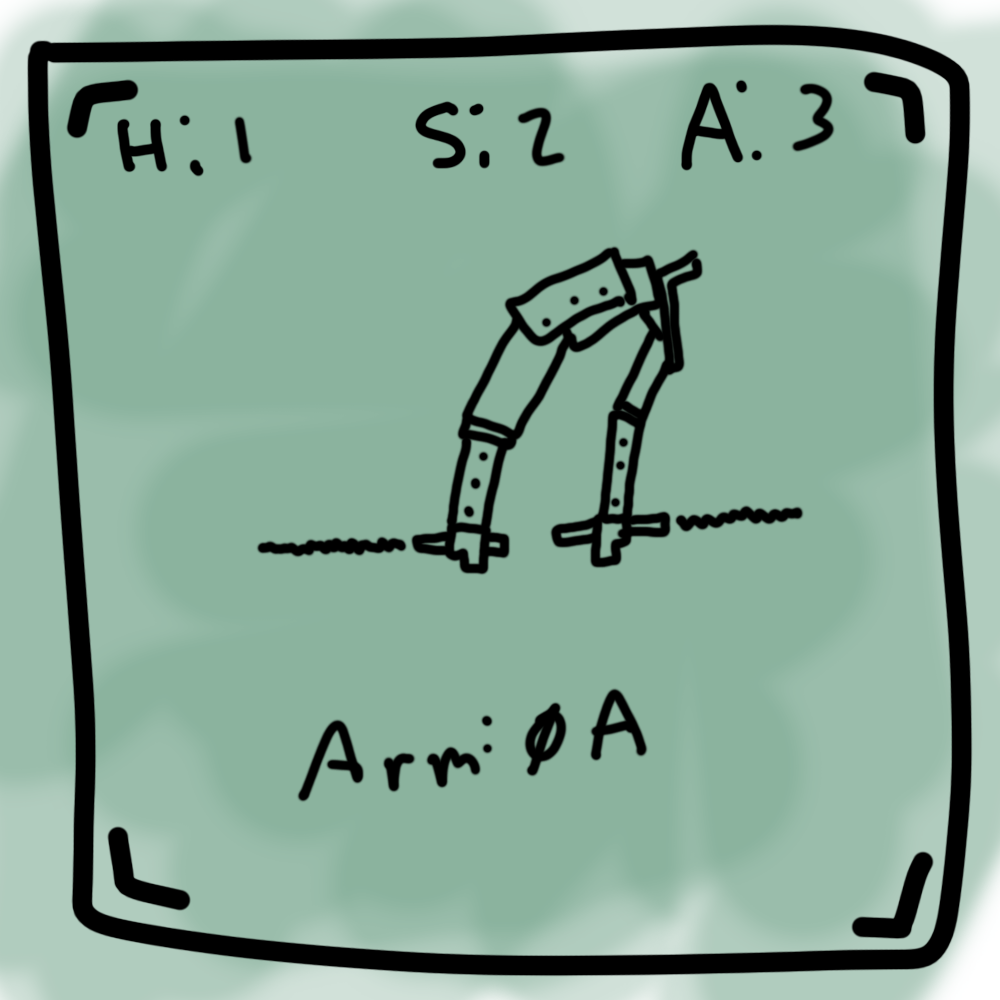 H: 1 S: 2 A: 3
Arm: Ø A